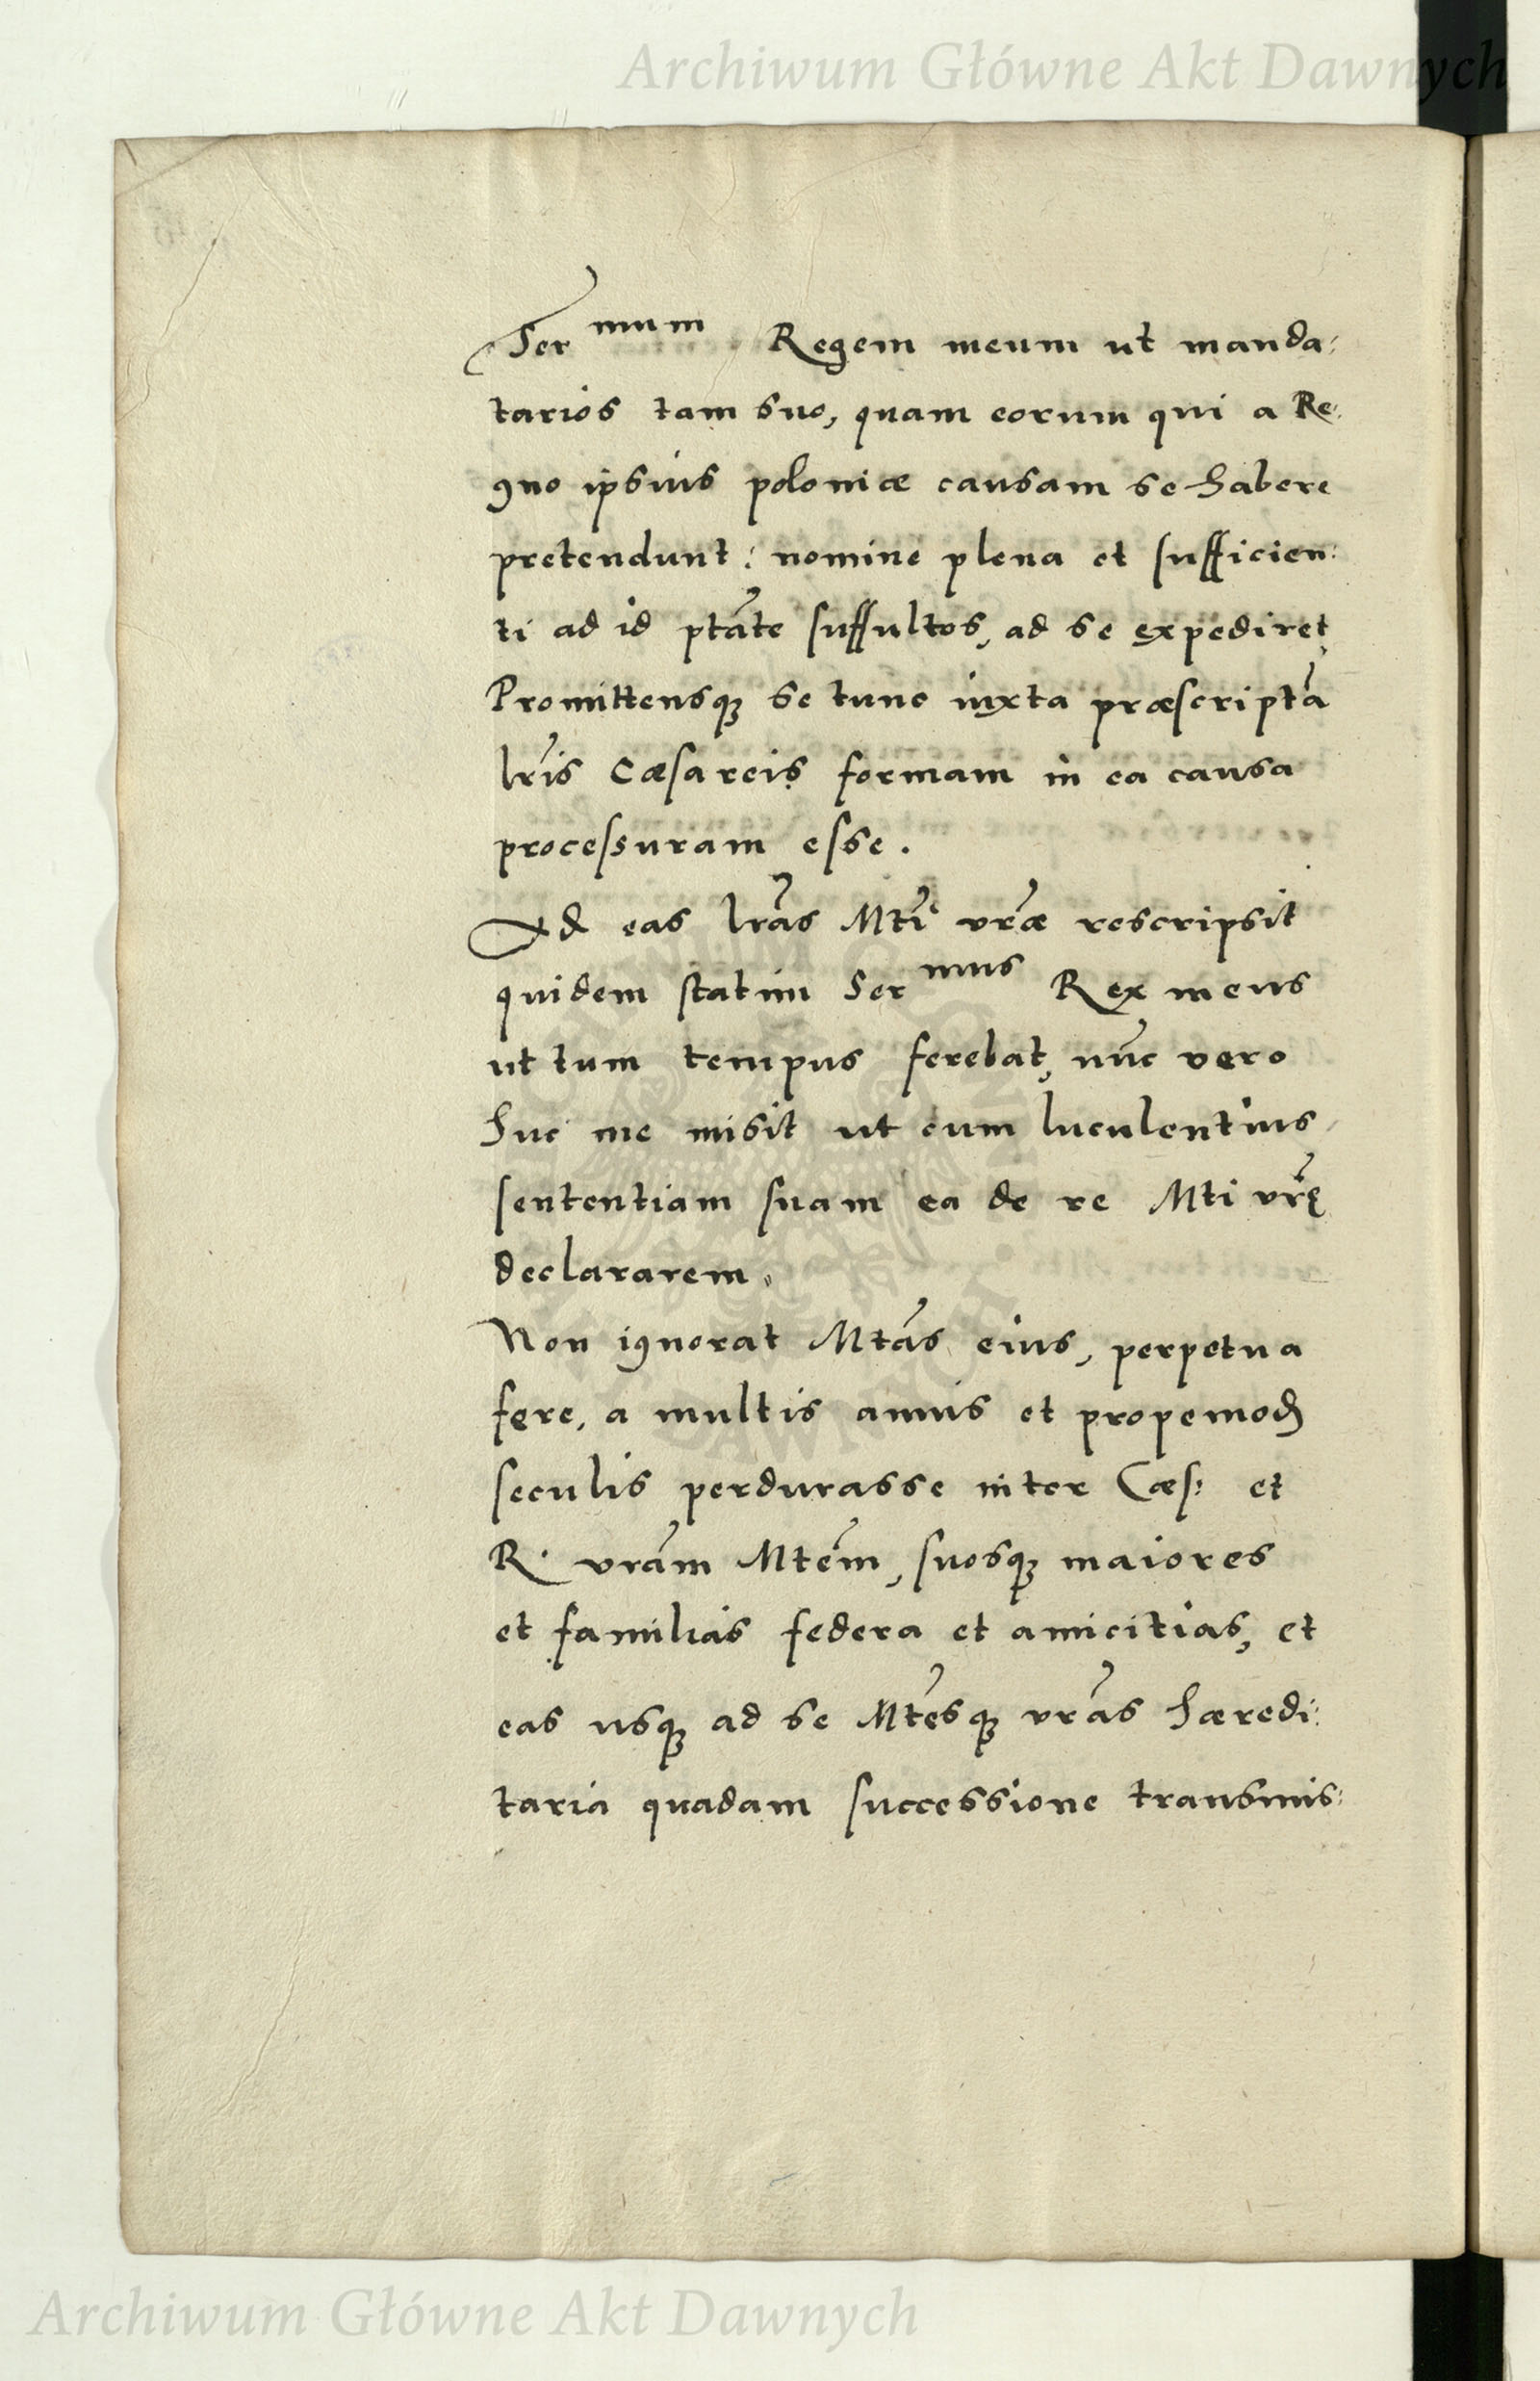 Archiwum Główne Akt Dawnych
Ser mum Regem meum ut manda:
tarios tam suo, quam eorum qui a Re:
gno ipsius poloniæ causam se habere
pretendunt: nomine plena et sufficien:
ti ad id ptāte suffultos, ad se expediret,
Promittensq₃ se tunc iuxta præscriptā
lr̄is Cæsareis formam in ea causa
processuram esse.
Ad eas lr̄as Mti vr̄æ rescripsit
quidem statim Ser mus Rex meus
ut tum tempus ferebat, nūc vero
huc me misit ut eum luculentius
sententiam suam ea de re Mti vr̄ę
declararem.
Non ignorat Mtās eius, perpetua
fere, a multis annis et propemod
seculis perdurasse inter Cæs: et
R. vrām Mtēm, suosq₃ maiores
et familias federa et amicitias, et
eas usq₃ ad se Mtēsq₃ vrās hæredi:
taria quadam successione transmis:
Archiwum Główne Akt Dawnych